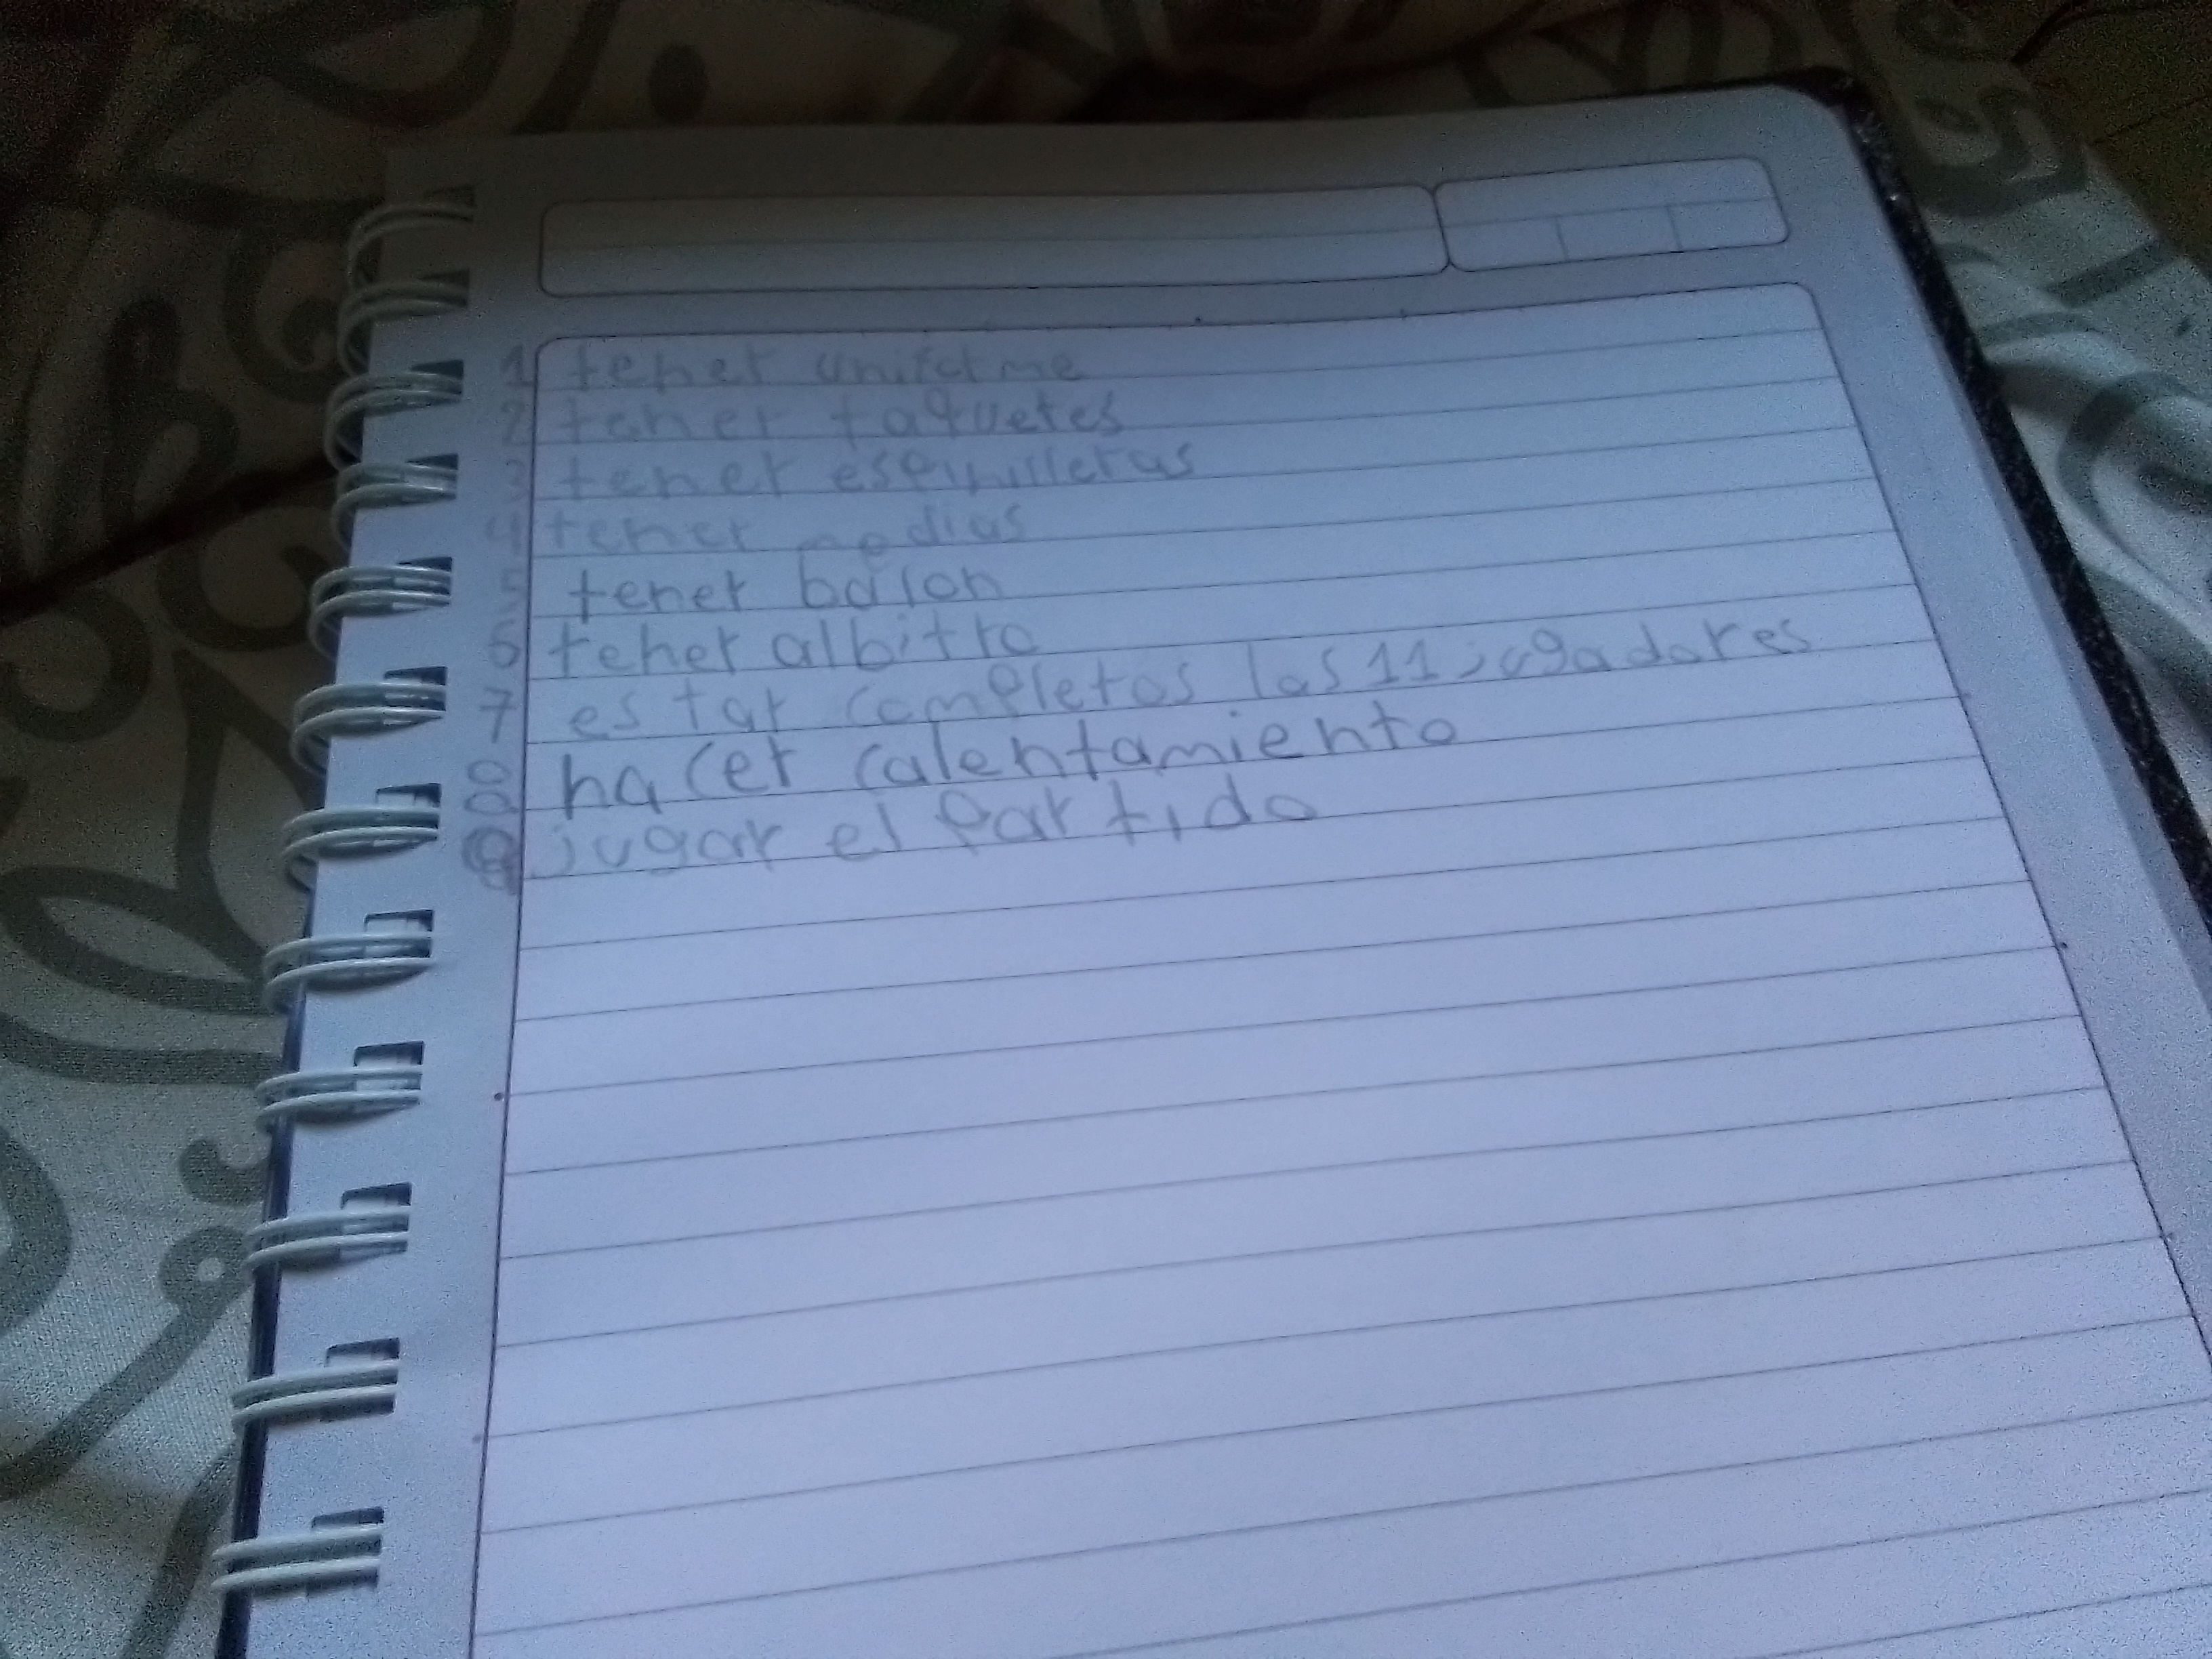 1 tener uniforme
2 tener taquetes
3 tener espinilleras
4 tener medias
5 tener balon
6 tener albitro
7 estar completos los 11 jugadores
8 hacer calentamiento
9 jugar el partido